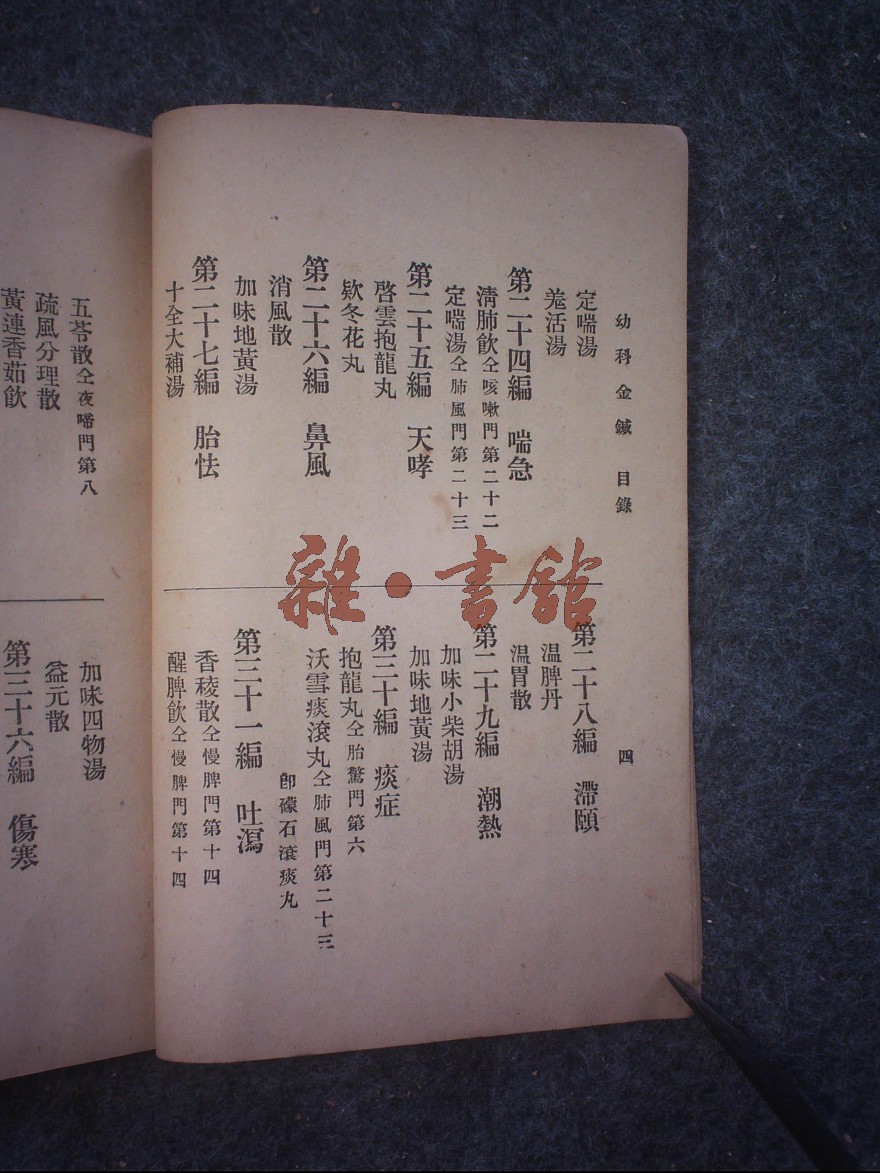 幼科金鍼 目錄 四
定喘湯
羗活湯
第二十四編 喘急
淸肺飲仝咳嗽門第二十二
定喘湯仝肺風門第二十三
第二十五編 天哮
啓雲抱龍丸
欵冬花丸
第二十六編 鼻風
消風散
加味地黃湯
第二十七編 胎怯
十全大補湯
第二十八編 滯頤
温脾丹
温胃散
第二十九編 潮熱
加味小柴胡湯
加味地黃湯
第三十編 痰症
抱龍丸仝胎驚門第六
沃雪痰滾丸仝肺風門第二十三
卽礞石滾痰丸
第三十一編 吐瀉
香稜散仝慢脾門第十四
醒脾飲仝慢脾門第十四
五苓散仝夜啼門第八
疏風分理散
黃連香茹飲
加味四物湯
益元散
第三十六編 傷寒
雜·書館